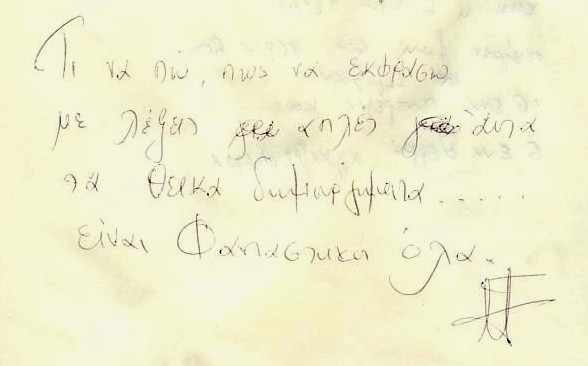 Τι να πω, πως να εκφράσω
με λέξεις απλές αυτα
τα θεικα δημιουργηματα.....
είναι Φανταστικα όλα.